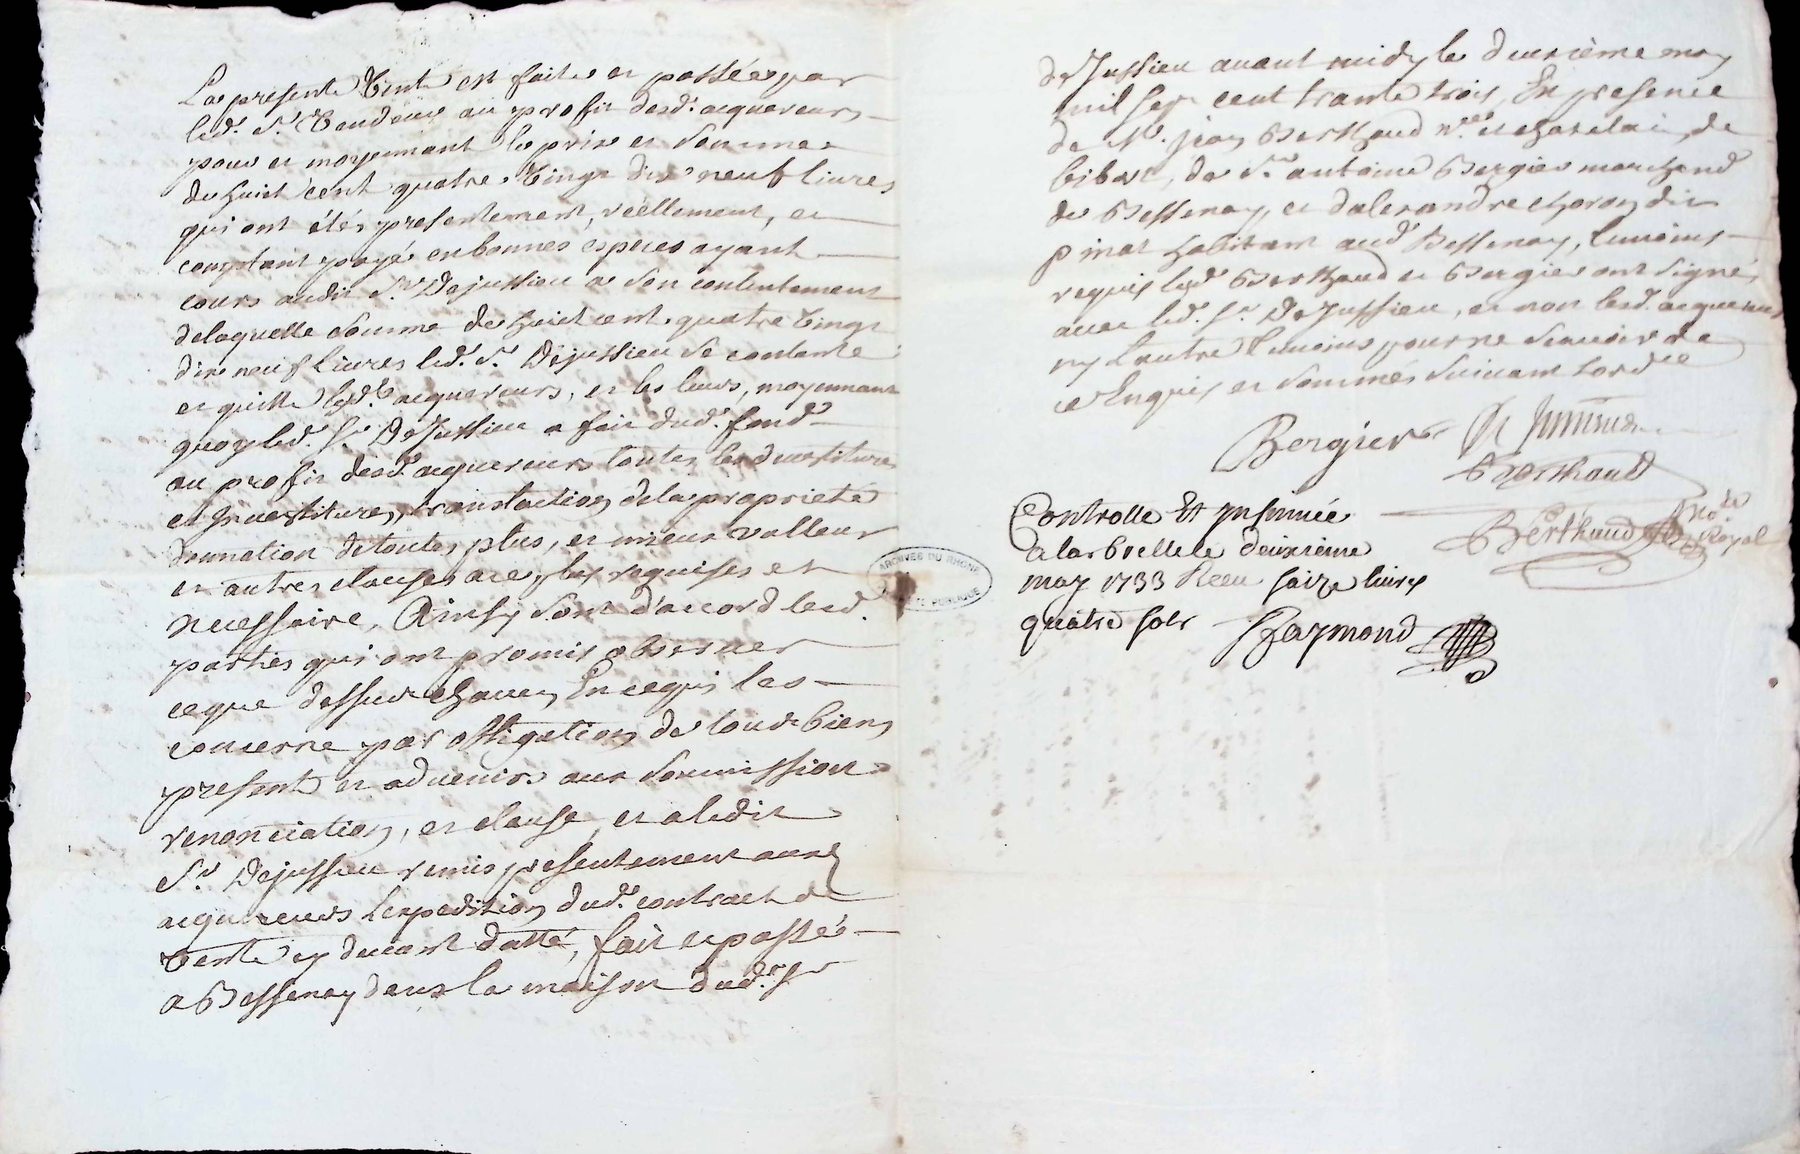 La presente Vente est faitte et passée par
led. Sr. Vendeur au profit desd. acquereurs
pour et moyennant le prix et somme
de huict cent quatre vingt dix neuf livres
qui ont étés presentement, réellement, et
comptant payé en bonnes especes ayant
cours audit Sr. Dejussieu a son contentement
de laquelle somme de huict cent quatre vingt
dix neuf livres led. Sr. Dejussieu se contente
et quitte lesd. acquereurs, et les leurs, moyennant
quoy led. Sr. DeJussieu a fait dud. fond
au profit desd. acquereurs toutes les devestitures
et Investitures, translation de la proprieté
donnation de toutes plus, et mieux valleur
et autres clauses a ce, les requises et
necessaire, Ainsy sont d'accord lesd.
parties qui ont promis observer
ce que dessus chacun En ce qui les
concerne par obligation de tous biens
present et advenirs aux soumission
renonciation, et clause, et a ledit
Sr. Dejussieu remis presentement auxd.
acquereurs l'expedition dud. contract de
Vente cy devant datté, fait et passé
a Bessenay dans la maison dud. Sr
de Jussieu avant midy le deuxième may
mil sept cent trante trois, En presence
de Me. jean Berthaud nre. et chatelain de
bibost, de Sr. antoine Bergier marchand
de Bessenay, et d'alexandre choron dit
pinat habitant aud. Bessenay, temoins
requis lesd. Berthaud et Bergier ont signé,
avec led. Sr. DeJussieu, et non lesd. acquereurs
ny l'autre temoins pour ne sçavoir de
ce Enquis et sommés suivant l'ord.ce
Bergier De Jussieu
Berthaud
Controlle Et insinuée
a larbrelle le deuxieme
may 1733 Receu saize livres
quatre sols Raymond
Berthaud No.re Royal
ARCHIVES DU RHONE